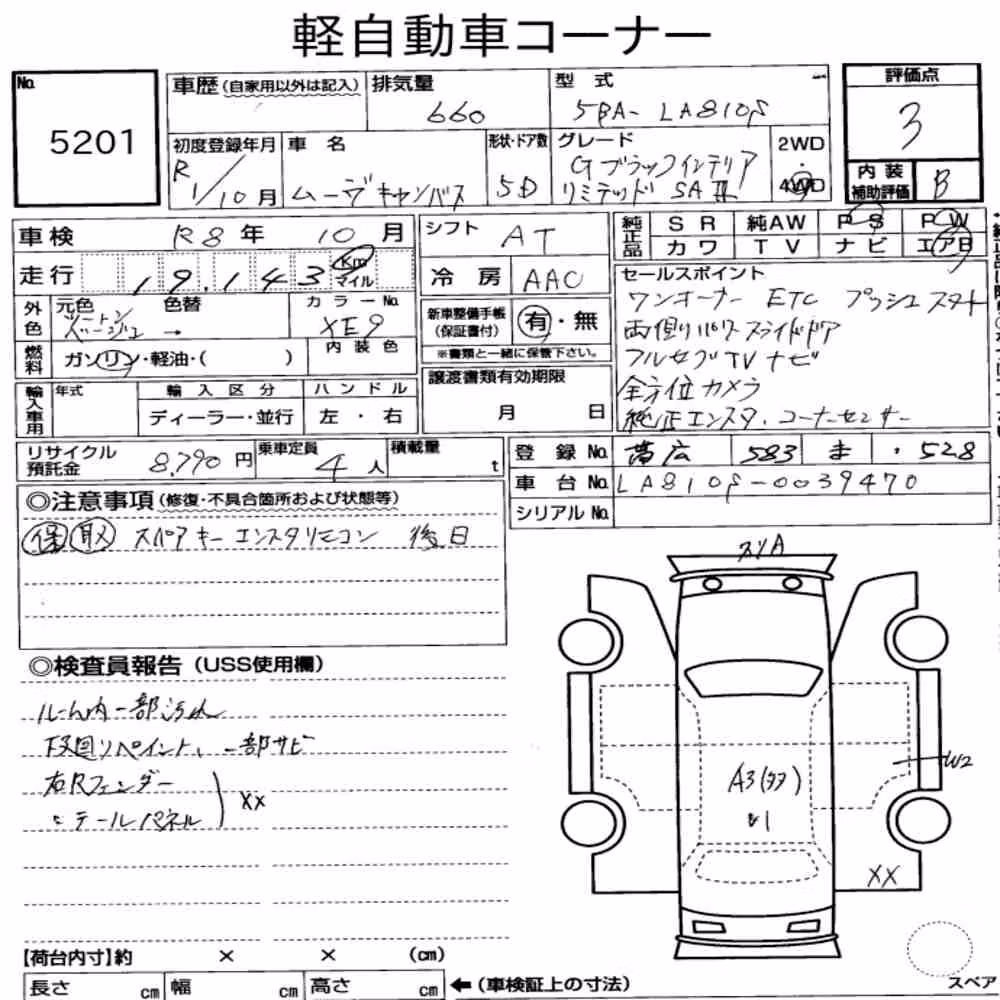 軽自動車コーナー
No. 5201
車歴(自家用以外は記入) 排気量 660 型式 5BA- LA810S
評価点 3
初度登録年月 R 1/10月 車名 ムーヴキャンバス 形状・ドア数 5D グレード Gブラックインテリア リミテッド SAⅢ 2WD・4WD
内装補助評価 B
車検 R8年 10月 シフト AT
純正品 SR 純AW PS PW
カワ TV ナビ エアB
走行 19,143 Km マイル 冷房 AAC
セールスポイント
ワンオーナー ETC プッシュスタート
両側パワースライドドア
フルセグTVナビ
全方位カメラ
純正エンスタ、コーナーセンサー
外色 元色 ツートン ベージュ → 色替 カラーNo. XE9
新車整備手帳(保証書付) 有・無
※書類と一緒に保管下さい。
燃料 ガソリン・軽油・( ) 内装色
輸入車用 年式 輸入区分 ハンドル
ディーラー・並行 左・右
譲渡書類有効期限
月 日
リサイクル預託金 8,790円 乗車定員 4人 積載量 t
登録No. 帯広 583 ま ・528
車台No. LA810S-0039470
シリアルNo.
◎注意事項(修復・不具合箇所および状態等)
保 取 スペアキー エンスタリモコン 後日
◎検査員報告(USS使用欄)
ルーム内一部汚れ
下回りペイント、一部サビ
右Rフェンダー
〃テールパネル ) XX
スリA
A3(タタ)
U1
W2
XX
【荷台内寸】約 × × (cm)
長さ cm 幅 cm 高さ cm ←(車検証上の寸法)
スペア